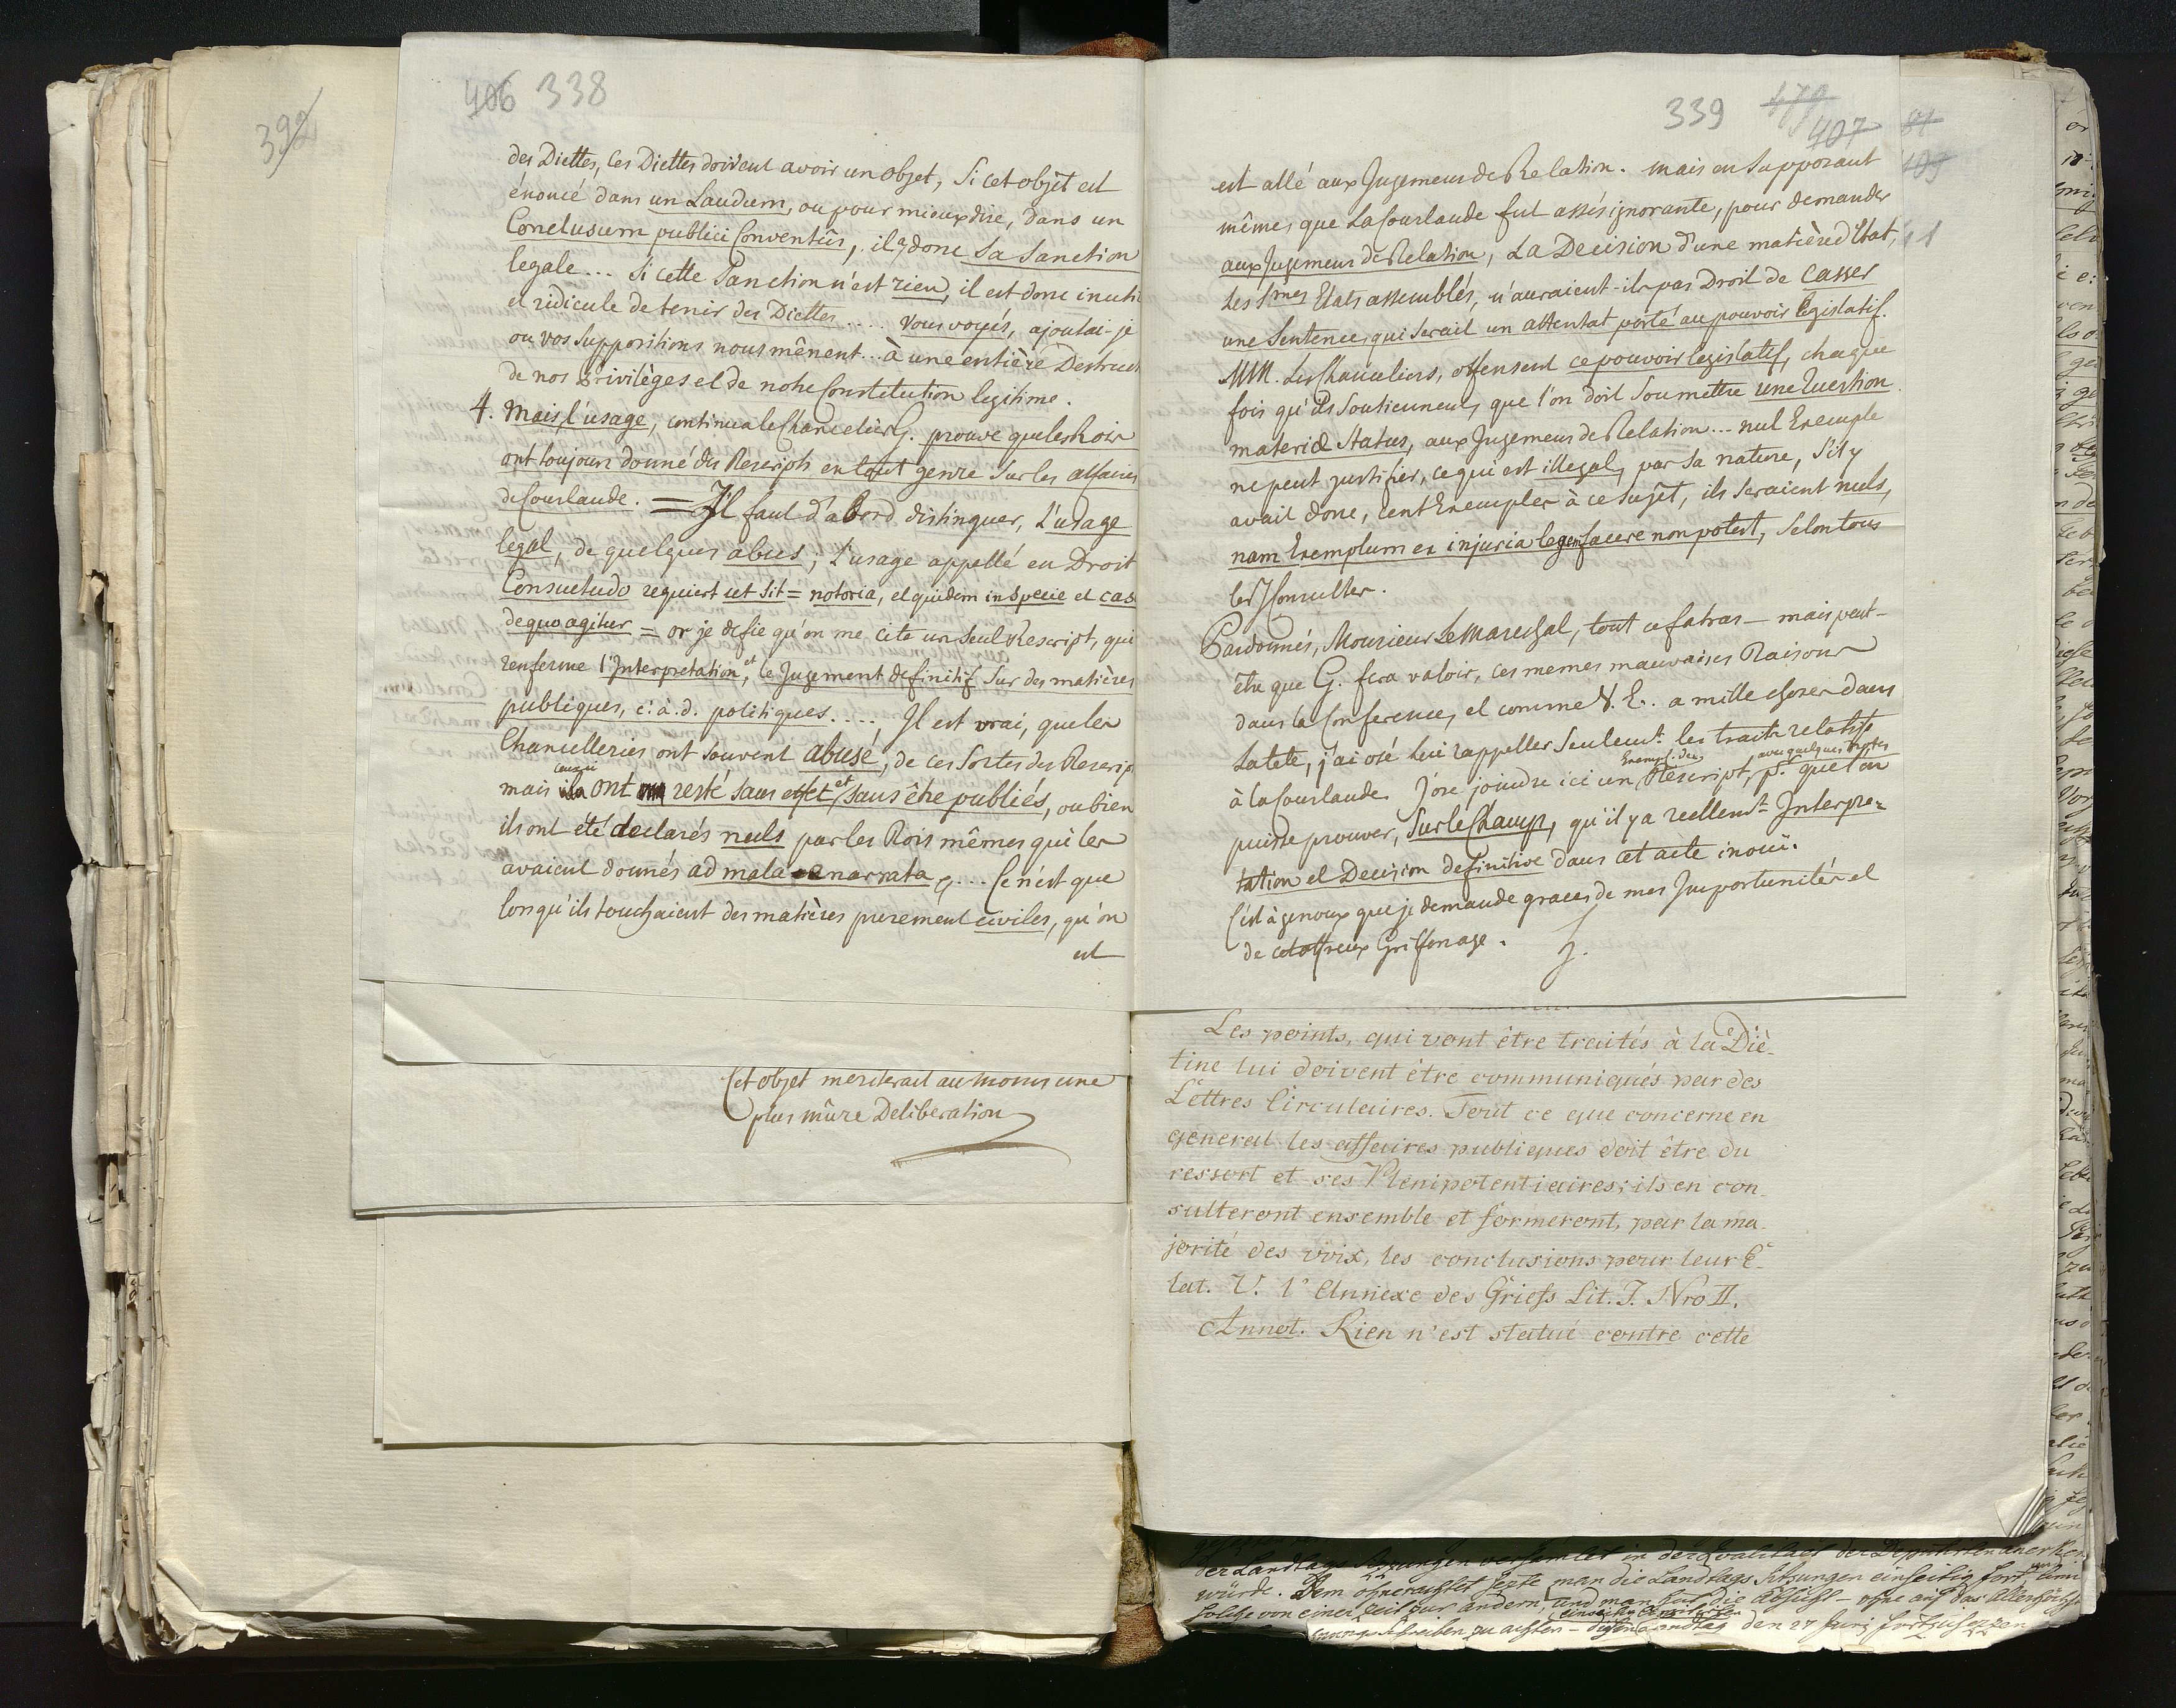 392
406 338
des Diettes, les Diettes doivent avoir un objet, Si cet objèt est
énoncé dans un Laudum, ou pour mieux dire, dans un
Conclusum publici Conventûs, il a donc sa Sanction
legale... Si cette Sanction n'est rien, il est donc inuti
et ridicule de tenir des Diettes.... vous voyés, ajoutai-je
ou vos Suppositions nous mênent... à une entière Destruct
de nos Privilèges et de notre Constitution legitime.
4. Mais l'usage, continua le Chancelier G. prouve que les Rois
ont toujours donné des Rescripts en tout genre sur les affaires
de Courlande. = Il faut d'abord distinguer, L'usage
legal, de quelques abus; L'usage appellé en Droit
Consuetudo requiert ut Sit = notoria, et quidem in specie et cas
de quo agitur = or je defie qu'on me cite un seul Rescript, qui
renferme l'Interpretation, et le Jugement definitif Sur des matières
publiques, c. à. d. politiques.... Il est vrai, que les
Chancelleries ont souvent abusé, de ces Sortes des Rescrip
mais ont resté sans effet et sans être publiés, ou bien
ils ont été declarés nuls par les Rois mêmes qui les
avaient donnés ad mala narrata,.... Ce n'est que
lorsqu'ils touchaient des matières purement civiles, qu'on
est
Cet objet meriterait au moins une
plus mûre Deliberation
339 479
407 81
109
11
est allé aux Jugemens de Relation. mais en Supposant
mêmes, que la Courlande fut assés ignorante, pour demander
aux Jugemens de Relation, La Decision d'une matière d'Etat,
les Smes Etats assemblés, n'auraient-ils pas Droit de Casser
une Sentence, qui serait un attentat porté au pouvoir legislatif.
MM. Les Chanceliers, offensent ce pouvoir legislatif, chaque
fois qu'ils soutiennent, que l'on doit Soumettre une Question
materiæ Status, aux Jugemens de Relation... nul Exemple
ne peut justifier, ce qui est illegal, par sa nature, S'il y
avait donc, cent Exemples à ce Sujèt, ils seraient nuls,
nam Exemplum ex injuria legem facere non potest, Selon tous
les JConsultes.
Pardonnés, Monsieur Le Marechal, tout ce fatras — mais peut-
être que G. fera valoir, ces memes mauvaises Raisons
dans la Conference, et comme V. E. a mille choses dans
la tete, j'ai osé lui rappeller seulemt. les traits relatifs
à la Courlande. J'ose joindre ici un Exempl. du Rescript, avec quelques Notes pr. que l'on
puisse prouver, Sur le Champ, qu'il y a reellemt. Interpre=
tation et Decision definitive dans cet acte inouï.
C'est à genoux que je demande graces de mes Importunités et
de cet affreux Griffonage.
Les points, qui vont être traités à la Diè-
tine lui doivent être communiqués par des
Lettres Circulaires. Tout ce que concerne en
general les affaires publiques doit être du
ressort et ses Plenipotentiaires; ils en con-
sulteront ensemble et formeront, par la ma-
jorité des voix, les conclusions pour leur E-
tat. V. l'Annexe des Griefs Lit. J. Nro II.
Annot. Rien n'est statué contre cette
würde. Dem ohnerachtet sezte man die Landtags Sitzungen einseitig fort
solche von einer Zeit zur andern, und man hat die Absicht — ohne auf das Allerhöchst
zu achten — diesen Landtag den 27 Juny fortzusezen